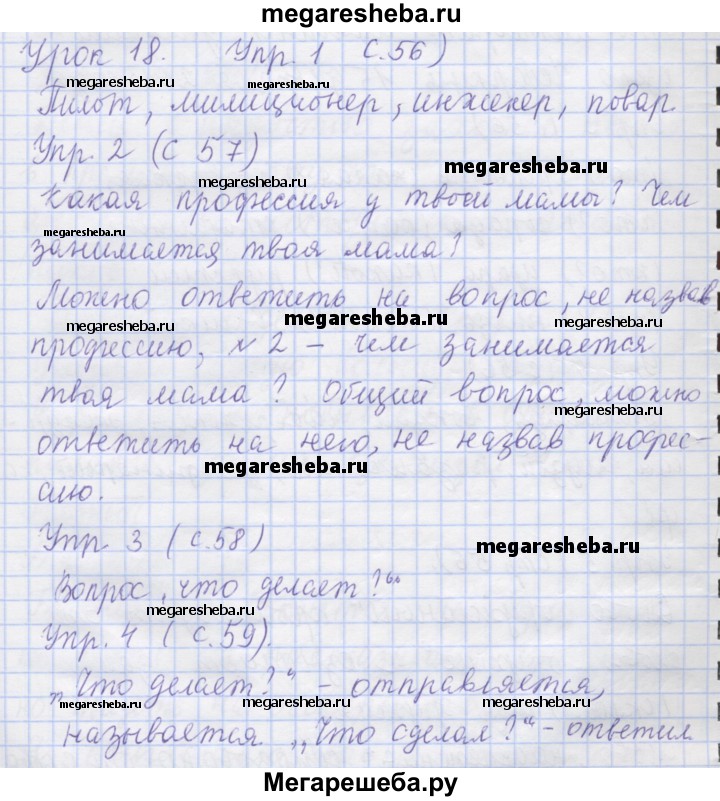 megaresheba.ru
Урок 18. Упр. 1 с.56)
megaresheba.ru megaresheba.ru
Пилот, милиционер, инженер, повар.
Упр. 2 (с 57)
megaresheba.ru
megaresheba.ru
Какая профессия у твоей мамы? Чем
megaresheba.ru
занимается твоя мама?
Можно ответить на вопрос, не назвав
megaresheba.ru megaresheba.ru megaresheba.ru
профессию, № 2 – чем занимается
твоя мама? Общий вопрос, можно
megaresheba.ru
ответить на него, не назвав профес-
megaresheba.ru
сию.
Упр. 3 (с.58)
megaresheba.ru
Вопрос „что делает?“
megaresheba.ru
Упр. 4 (с.59).
„Что делает?“ – отправляется,
megaresheba.ru megaresheba.ru megaresheba.ru
называется „Что сделал?“ – ответил
Мегарешеба.ру